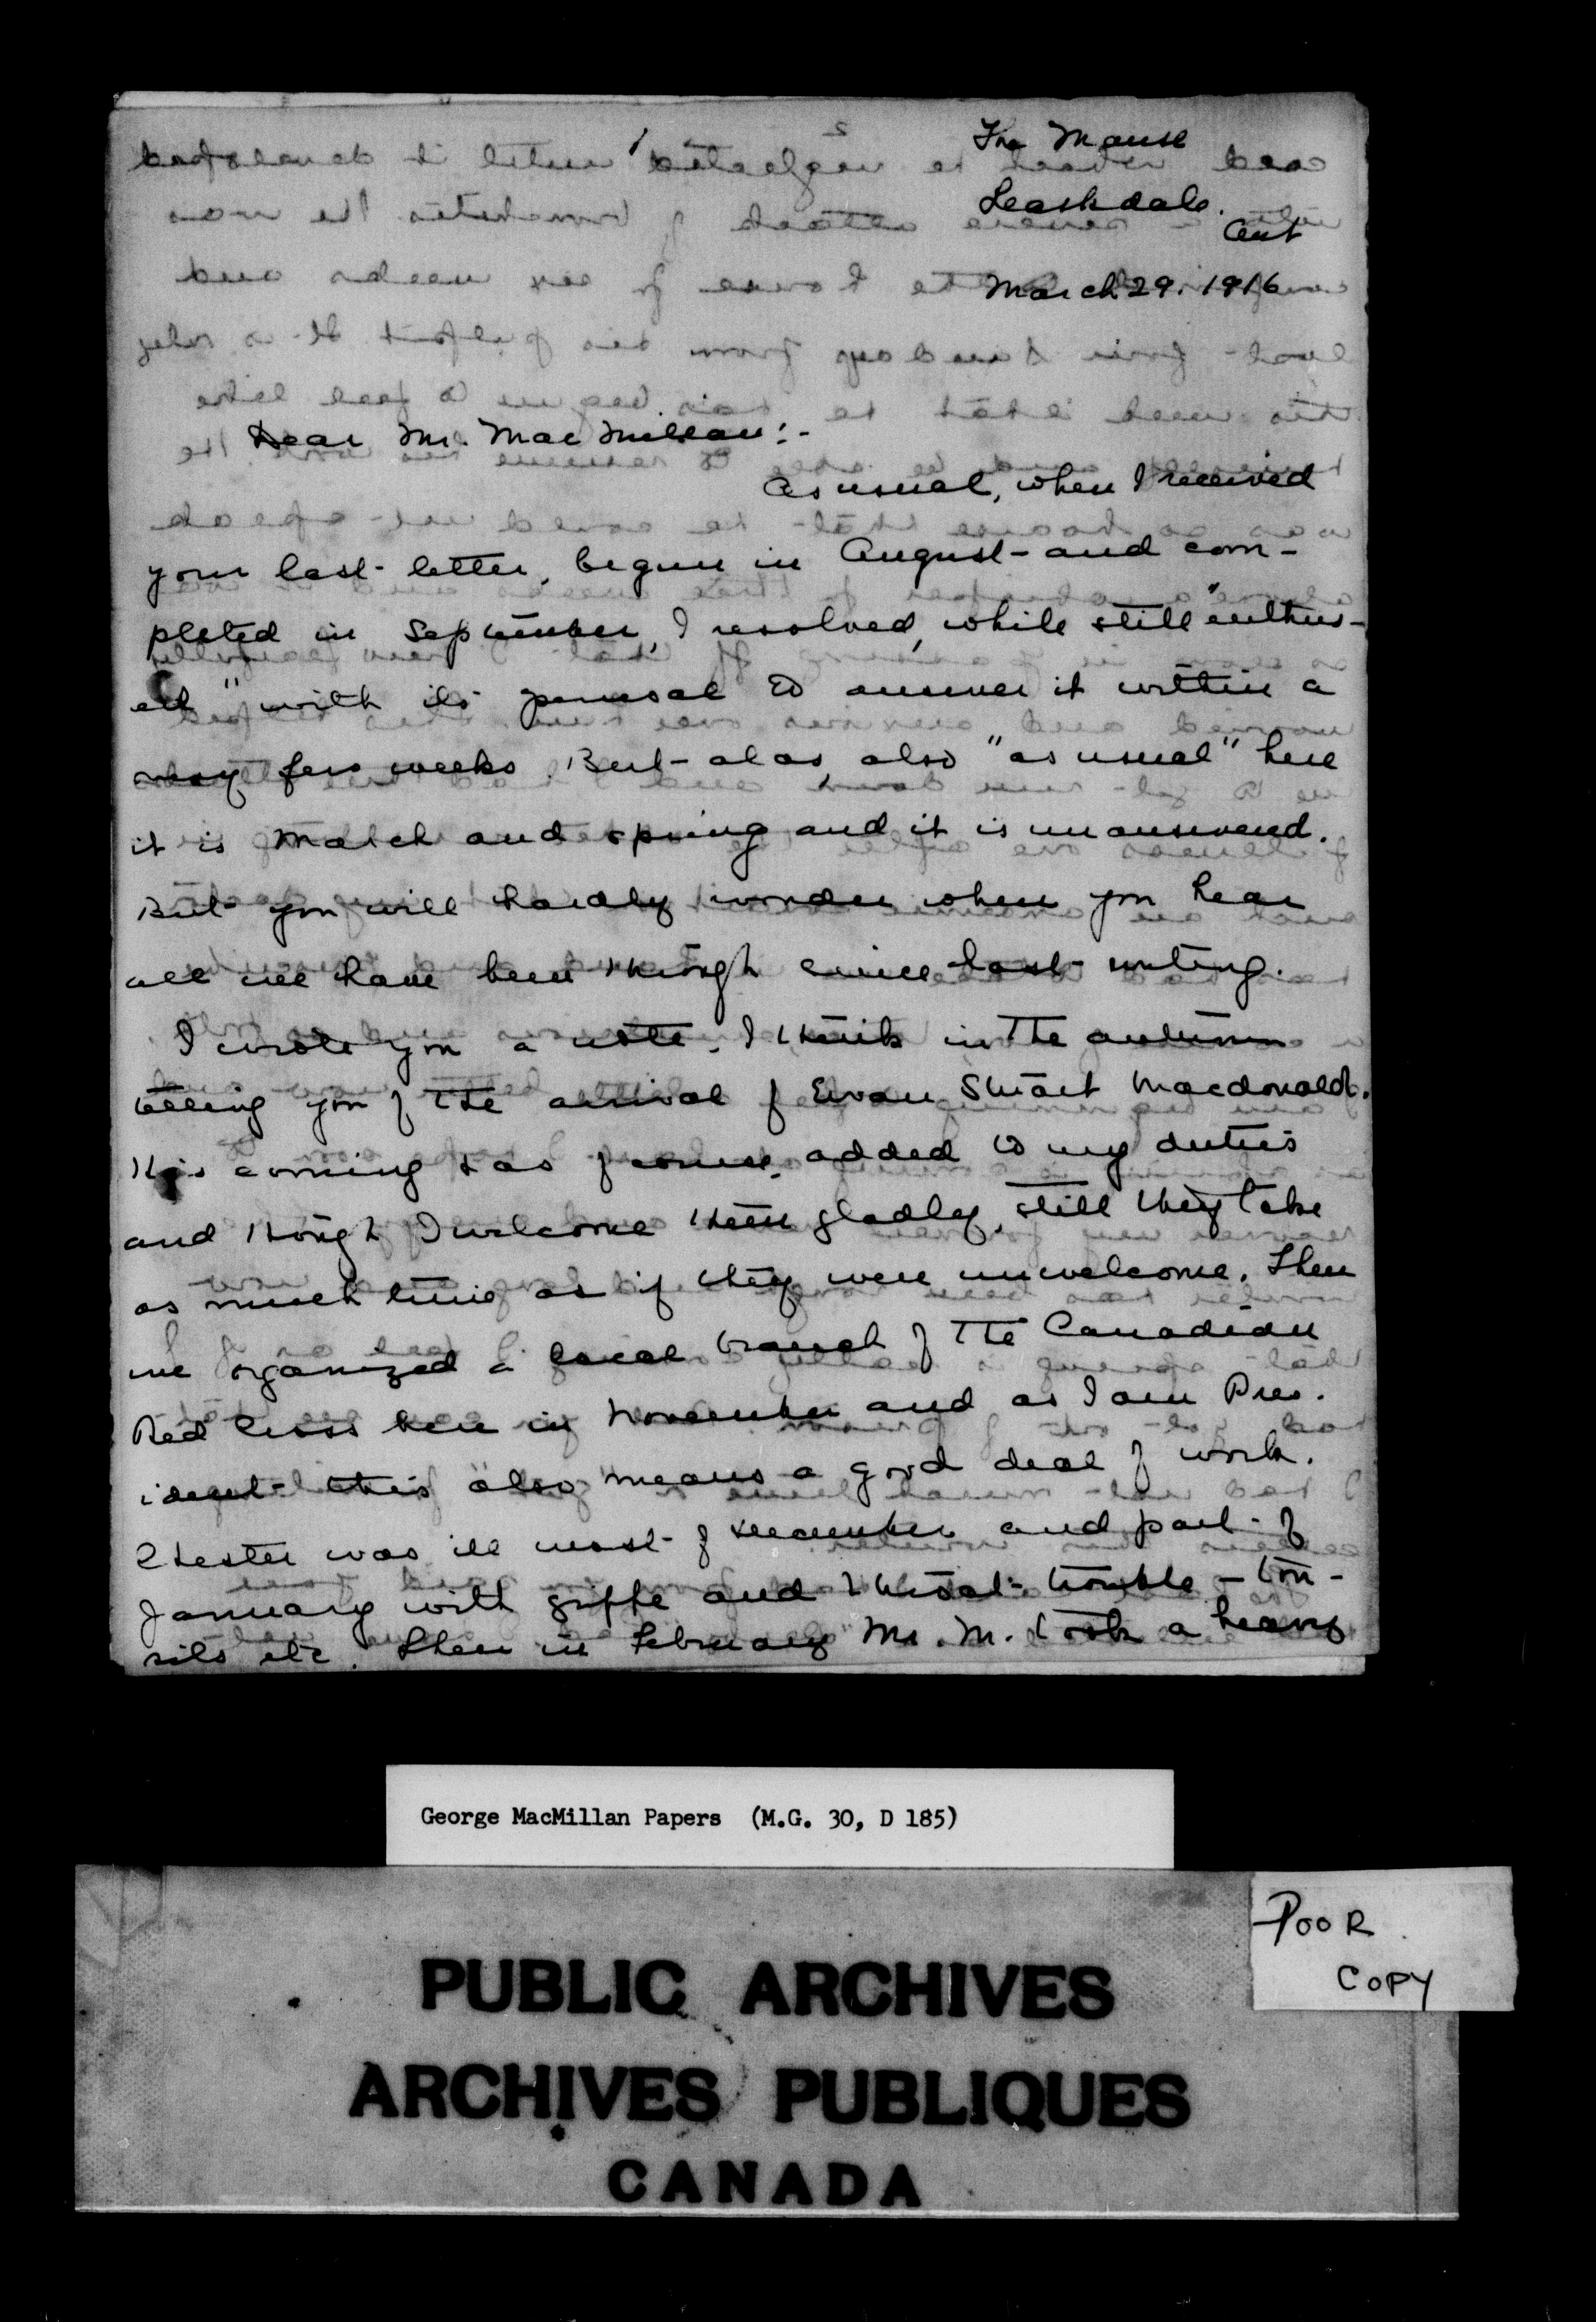 1
The Manse
Leaskdale.
Ont
March 29. 1916
Dear Mr. MacMillan:-
As usual, when I received
your last letter, begun in August and com-
pleted in September, I resolved, while still "enthus-
ed" with its perusal to answer it within a
very few weeks. But alas, also "as usual" here
it is March and spring and it is unanswered.
But you will hardly wonder when you hear
all we have been through since last writing.
I wrote you a note, I think in the autumn
telling you of the arrival of Ewan Stuart Macdonald.
His coming has of course, added to my duties
and though I welcome them gladly, still they take
as much time as if they were unwelcome. Then
we organized a local branch of the Canadian
Red Cross here in November and as I am Pres-
ident this also means a good deal of work.
Chester was ill most of December and part of
January with grippe and throat trouble - ton-
sils etc. Then in February Mr. M. took a heavy
George MacMillan Papers (M.G. 30, D 185)
POOR
COPY
PUBLIC ARCHIVES
ARCHIVES PUBLIQUES
CANADA